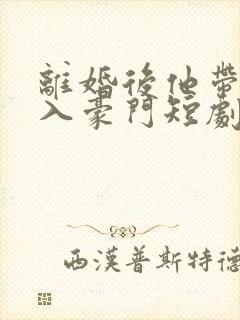 離婚後他帶
入豪門短劇
西漢普斯特德